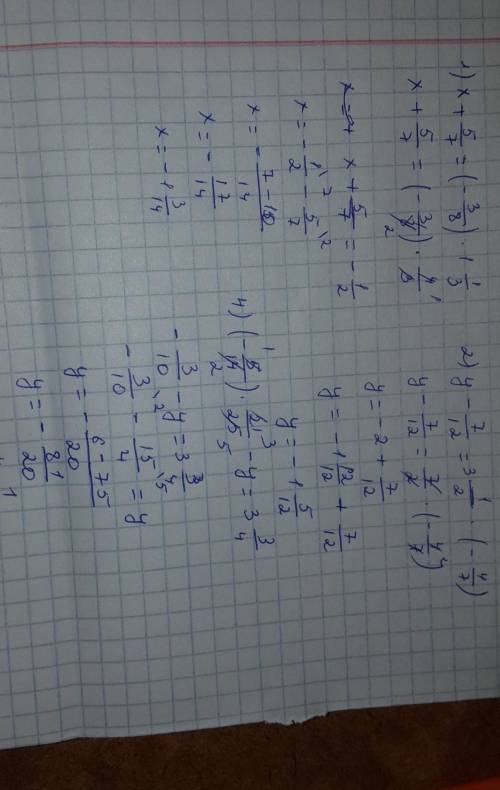 1) x + 5/7 = (- 3/8) · 1 1/3
x + 5/7 = (- 3/8) · 4/3
x + 5/7 = - 1/2
x = - 1/2 - 5/7
x = - 7-10/14
x = - 17/14
x = - 1 3/14
2) y - 7/12 = 3 1/2 · (- 4/7)
y - 7/12 = 7/2 (- 4/7)
y = -2 + 7/12
y = -1 12/12 + 7/12
y = -1 5/12
4) - y = 3 3/4
- 3/10 - y = 3 3/4
- 3/10 - 15/4 = y
y = - 6-75/20
y = - 81/20